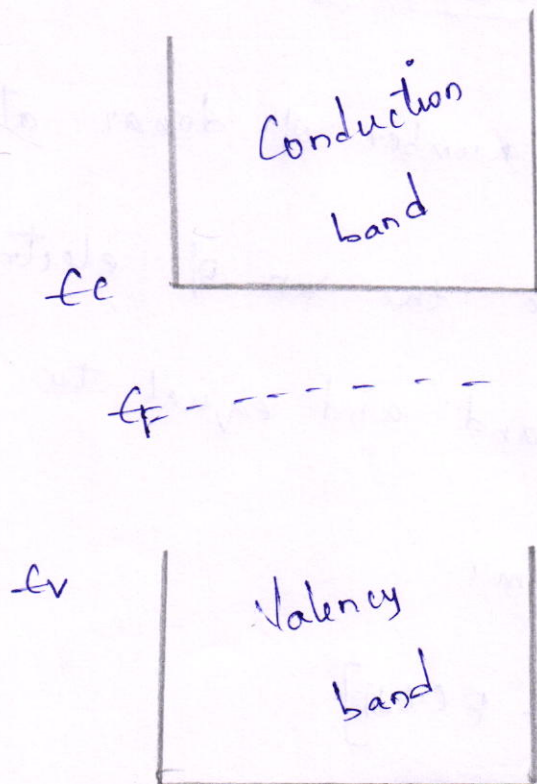 Conduction
band
Ec
EF
Ev
Valency
band